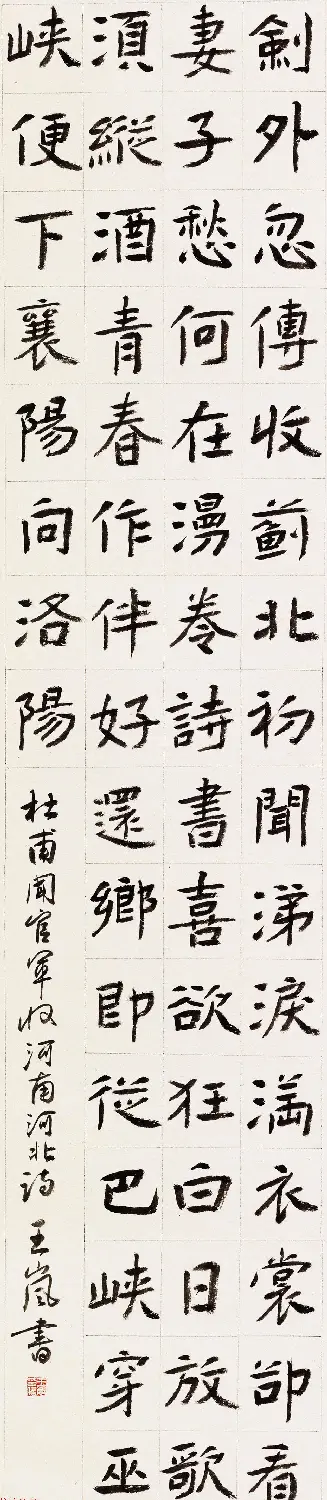 劍外忽傳收薊北初聞涕淚滿衣裳卻看
妻子愁何在漫卷詩書喜欲狂白日放歌
須縱酒青春作伴好還鄉即從巴峽穿巫
峽便下襄陽向洛陽
杜甫聞官軍收河南河北詩 王嵐書